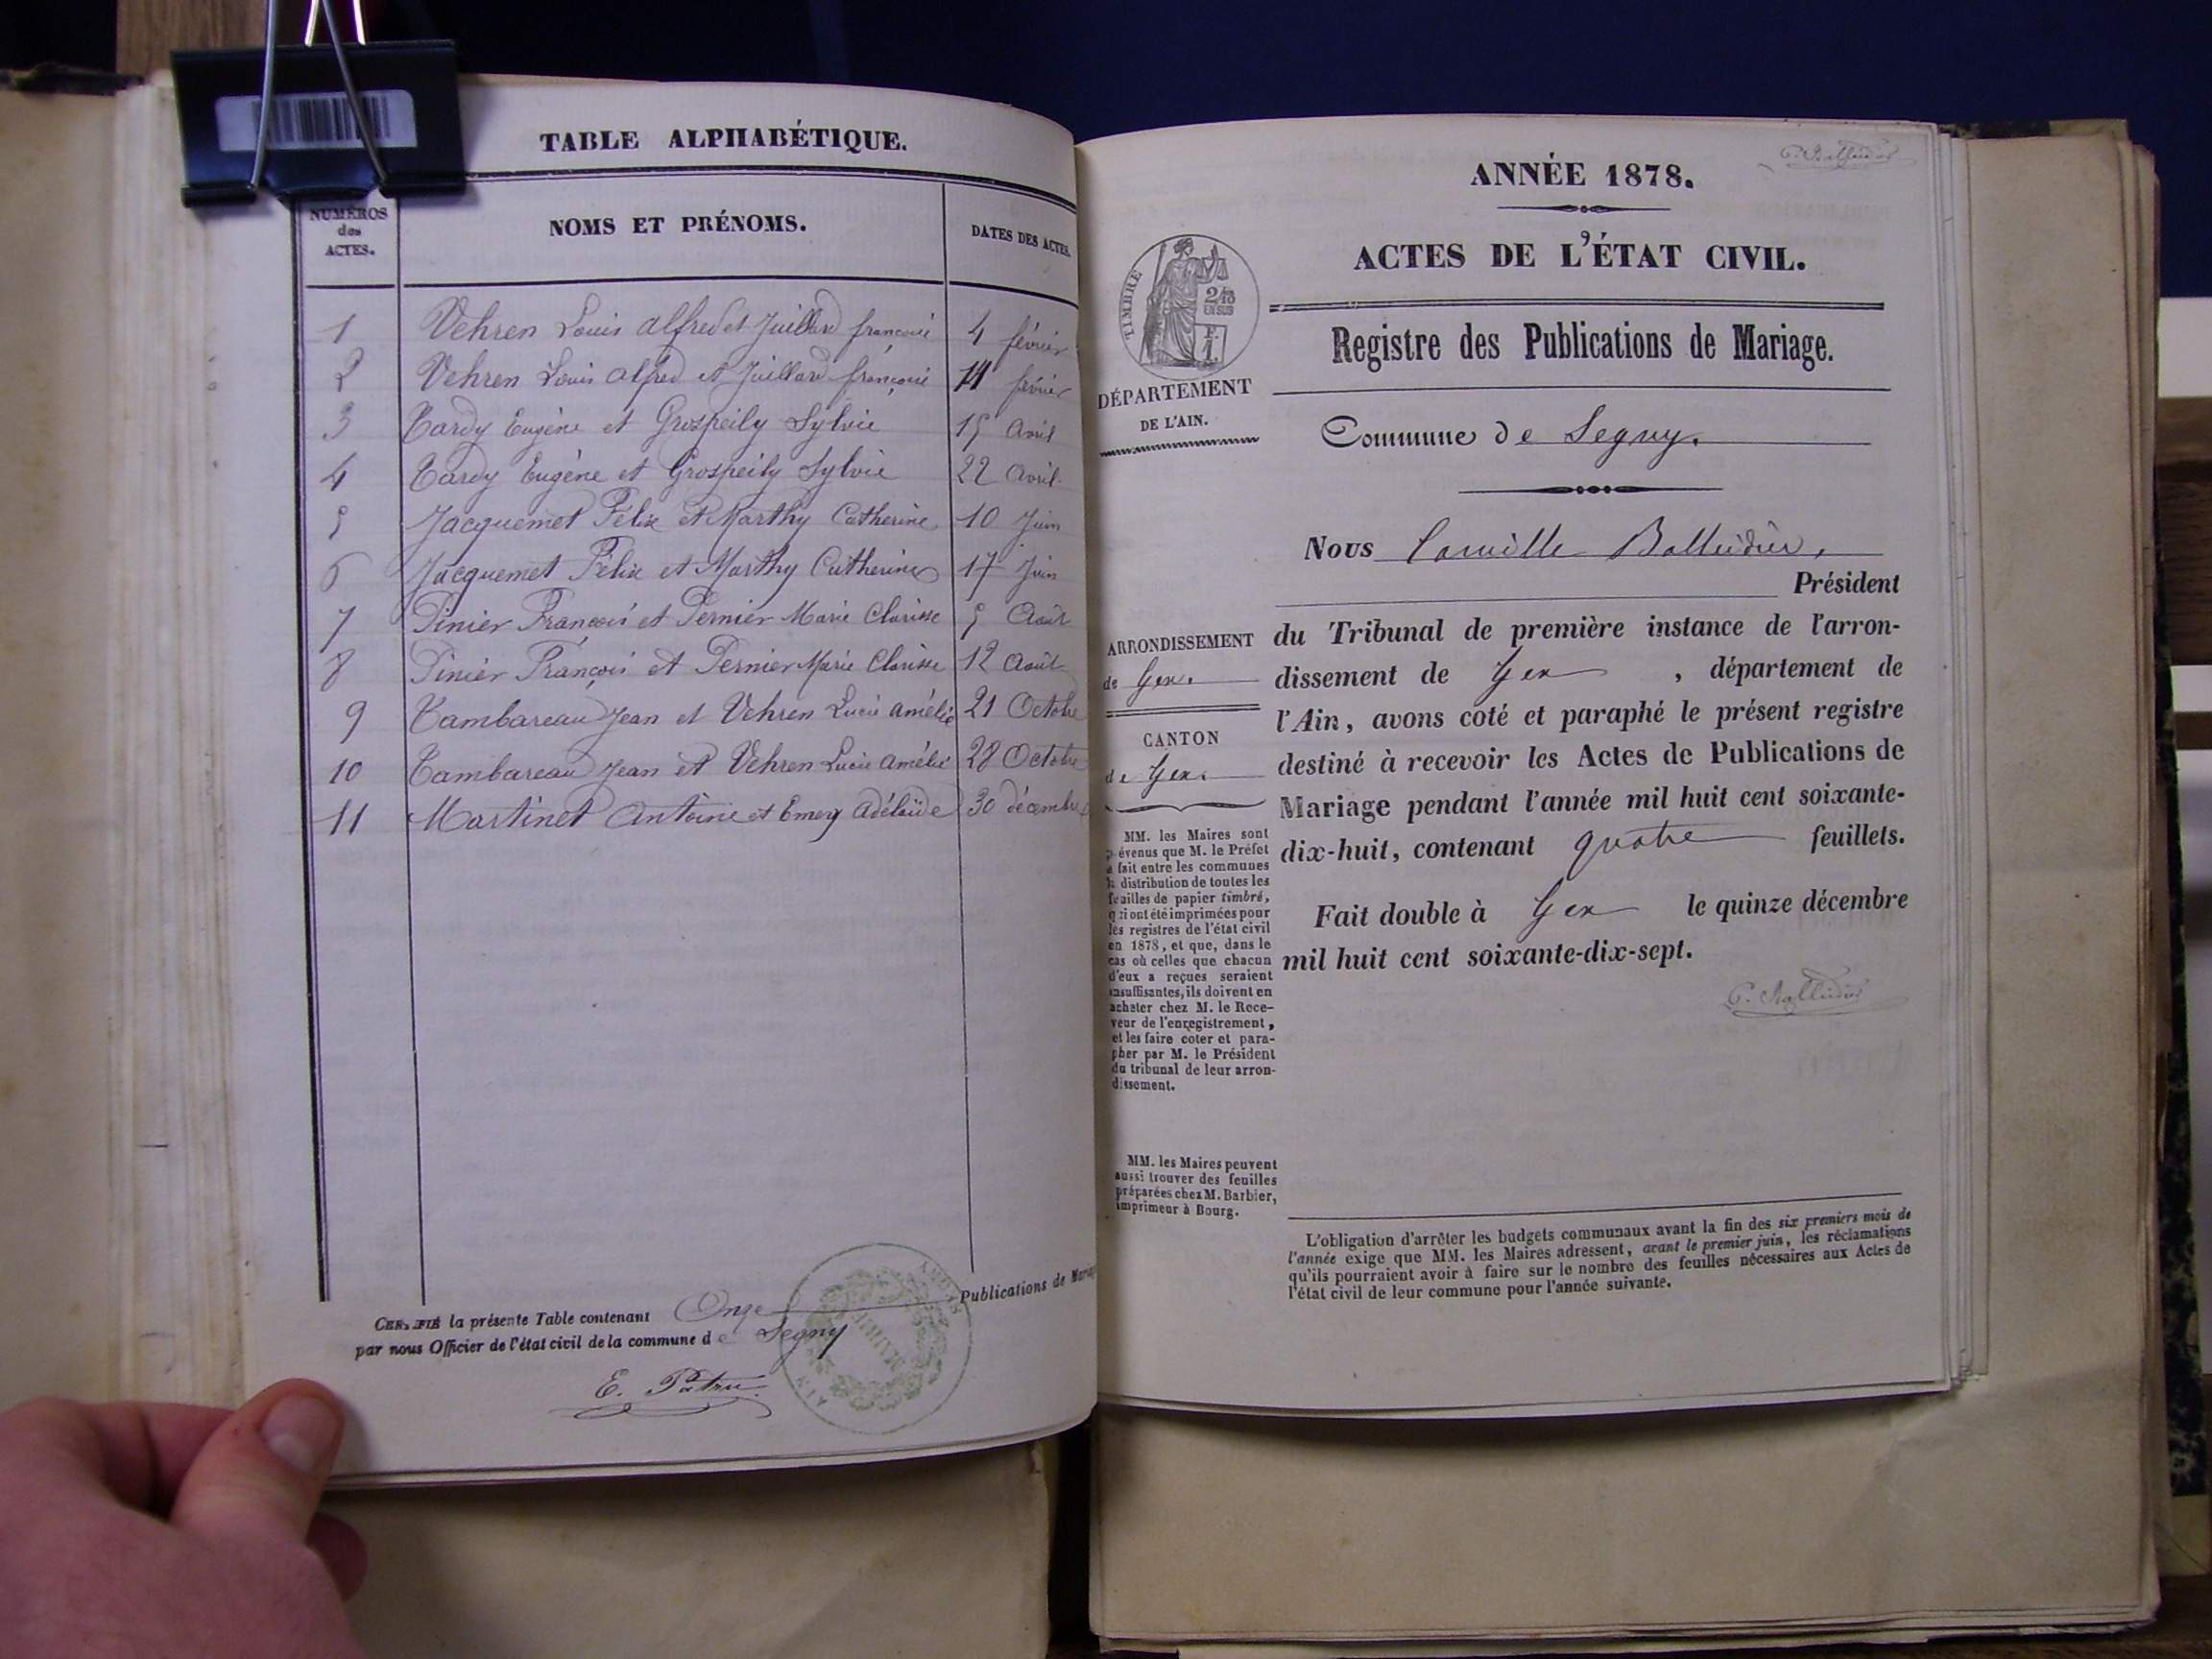 TABLE ALPHABÉTIQUE.
NUMÉROS des ACTES.
NOMS ET PRÉNOMS.
DATES DES ACTES.
1 Vehren Louis alfred et Juillard françoise 4 février
2 Vehren Louis alfred et Juillard françoise 11 février
3 Tardy Eugène et Grospeily Sylvie 15 Avril
4 Tardy Eugène et Grospeily Sylvie 22 Avril.
5 Jacquemet Félix et Marthy Catherine 10 Juin
6 Jacquemet Félix et Marthy Catherine 17 Juin
7 Pinier François et Pernier Marie Clarisse 5 Août
8 Pinier François et Pernier Marie Clarisse 12 Août
9 Tambareau Jean et Vehren Lucie amélie 21 Octobre
10 Tambareau Jean et Vehren Lucie amélie 28 Octobre
11 Martinet Antoine et Emery Adélaïde 30 décembre
CERTIFIÉ la présente Table contenant Onze Publications de Mariage
par nous Officier de l'état civil de la commune de Segny
E. Patru
MAIRIE
AIN
ANNÉE 1878.
ACTES DE L'ÉTAT CIVIL.
TIMBRE
2/10
EN SUS
F.
1.
Registre des Publications de Mariage.
DÉPARTEMENT
DE L'AIN.
Commune de Segny.
Nous Camille Balleidier,
Président
du Tribunal de première instance de l'arron-
dissement de Gex, département de
l'Ain, avons coté et paraphé le présent registre
destiné à recevoir les Actes de Publications de
Mariage pendant l'année mil huit cent soixante-
dix-huit, contenant quatre feuillets.
Fait double à Gex le quinze décembre
mil huit cent soixante-dix-sept.
C. Balleidier
ARRONDISSEMENT
de Gex.
CANTON
de Gex.
MM. les Maires sont
prévenus que M. le Préfet
a fait entre les communes
la distribution de toutes les
feuilles de papier timbré,
qui ont été imprimées pour
les registres de l'état civil
en 1878, et que, dans le
cas où celles que chacun
d'eux a reçues seraient
insuffisantes, ils doivent en
acheter chez M. le Rece-
veur de l'enregistrement,
et les faire coter et para-
pher par M. le Président
du tribunal de leur arron-
dissement.
MM. les Maires peuvent
aussi trouver des feuilles
préparées chez M. Barbier,
imprimeur à Bourg.
L'obligation d'arrêter les budgets communaux avant la fin des six premiers mois de
l'année exige que MM. les Maires adressent, avant le premier juin, les réclamations
qu'ils pourraient avoir à faire sur le nombre des feuilles nécessaires aux Actes de
l'état civil de leur commune pour l'année suivante.